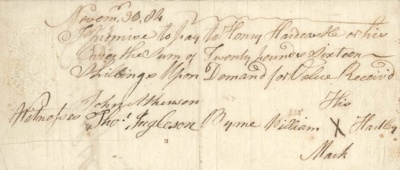 Novemr 30, 84
I Promise to pay To Henry Hardcastle or his
Order the Sum of Twenty pounds Sixteen
Shillings Upon Demand for Value Received
John Atkinson His
Witnesses Thos. Ingleson By me William X Hartley
Mark